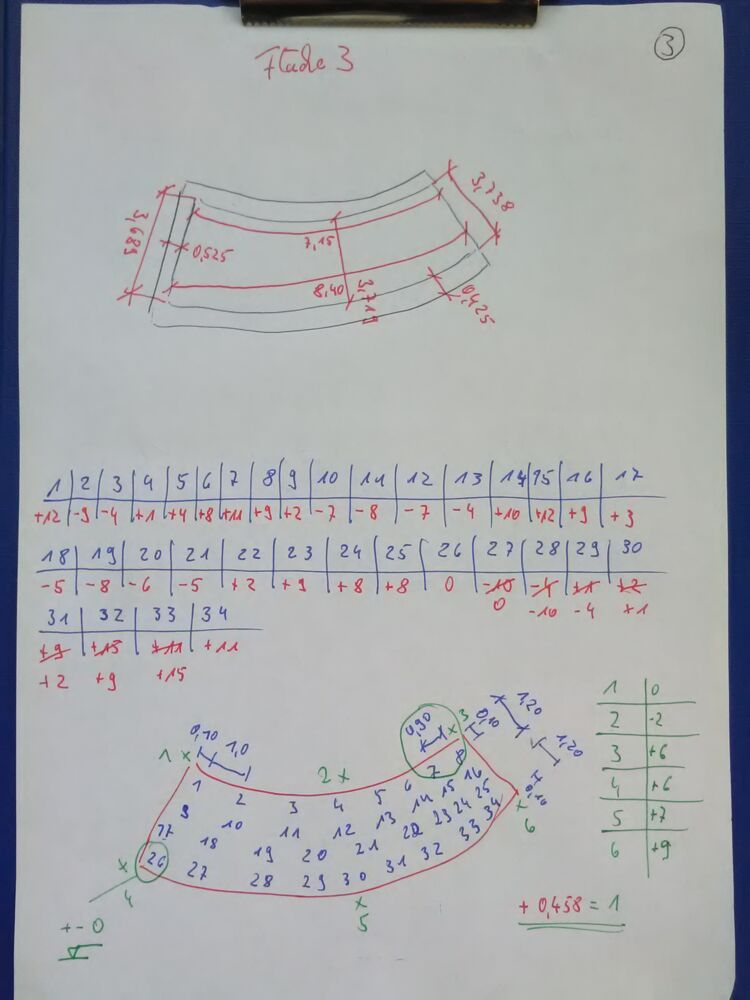 3
Flade 3
3,685
3,738
0,525
7,15
8,40
3,719
0,425
1 2 3 4 5 6 7 8 9 10 11 12 13 14 15 16 17
+12 -9 -4 +1 +4 +8 +11 +9 +2 -7 -8 -7 -4 +10 +12 +9 +3
18 19 20 21 22 23 24 25 26 27 28 29 30
-5 -8 -6 -5 +2 +9 +8 +8 0 -10 -4 +1 +2
0 -10 -4 +1
31 32 33 34
+9 +13 +11 +11
+2 +9 +15
1 0
2 -2
3 +6
4 +6
5 +7
6 +9
0,10 1,0
0,90
3 0,10 1,20
1,20
0,10
1 x
2 x
x
1 2 3 4 5 6 7 8
9 10 11 12 13 14 15 16
17 18 19 20 21 22 23 24 25
26 27 28 29 30 31 32 33 34
x 4
x 5
x 6
+- 0
+ 0,458 = 1